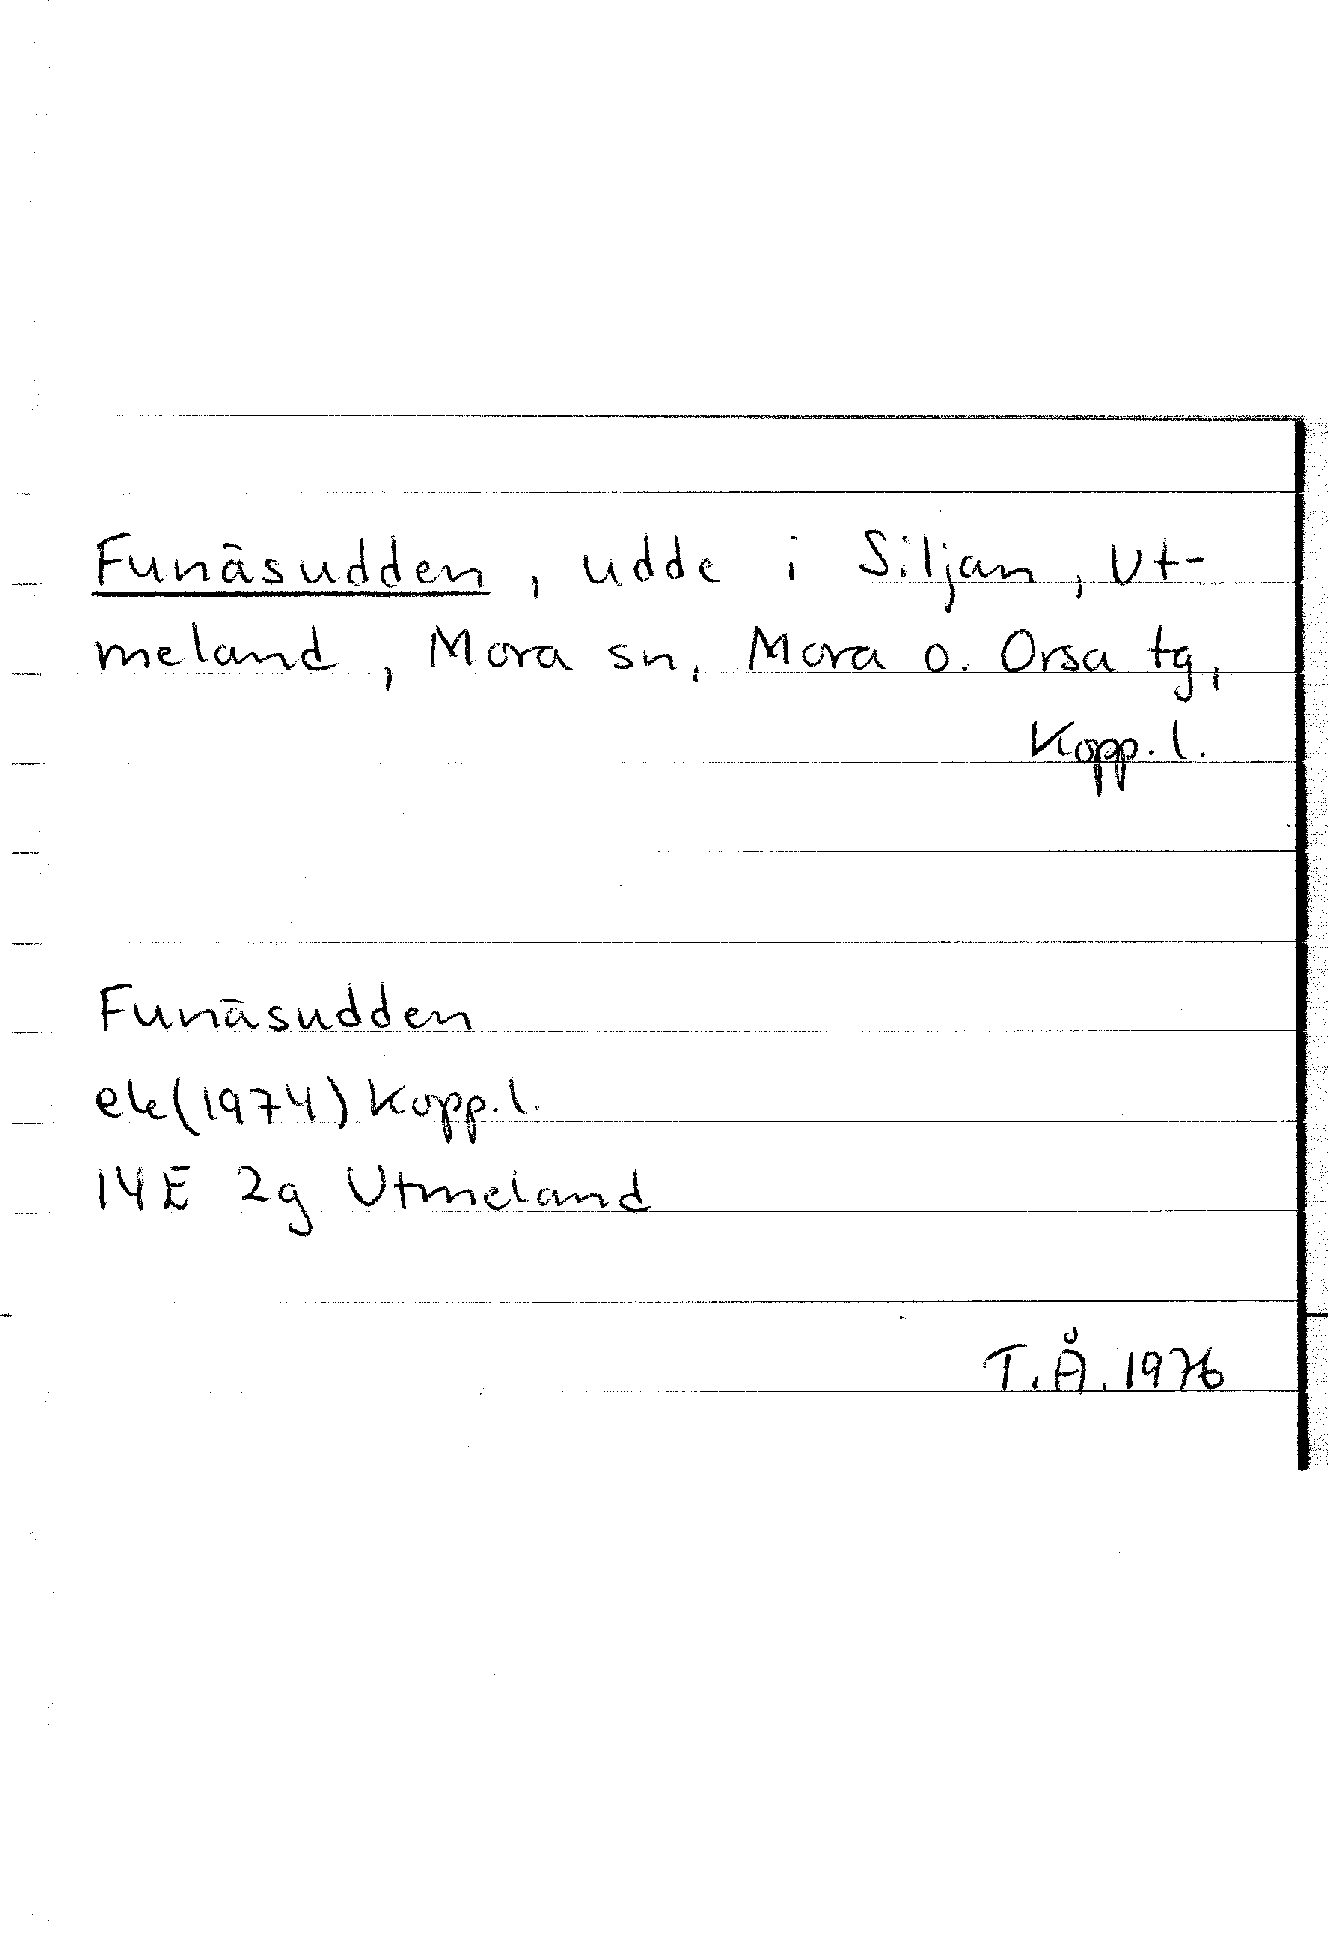 Funäsudden, udde i Siljan, Ut-
meland, Mora sn, Mora o. Orsa tg,
Kopp. l.
Funäsudden
ek(1974) Kopp. l.
14E 2g Utmeland
T. Å. 1976